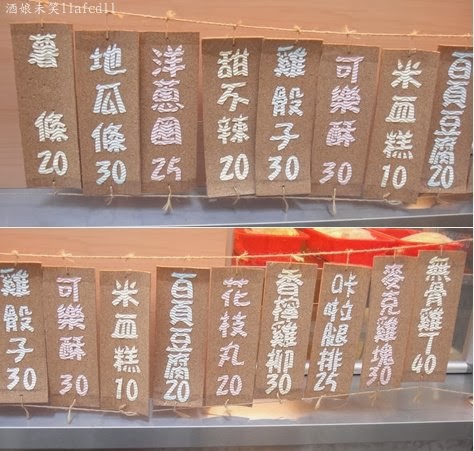 酒娘未笑llafcdll
薯條20
地瓜條30
洋蔥圈25
甜不辣20
雞骰子30
可樂酥30
米血糕10
百頁豆腐20
雞骰子30
可樂酥30
米血糕10
百頁豆腐20
花枝丸20
香檸雞柳30
咔啦腿排25
麥克雞塊30
無骨雞丁40